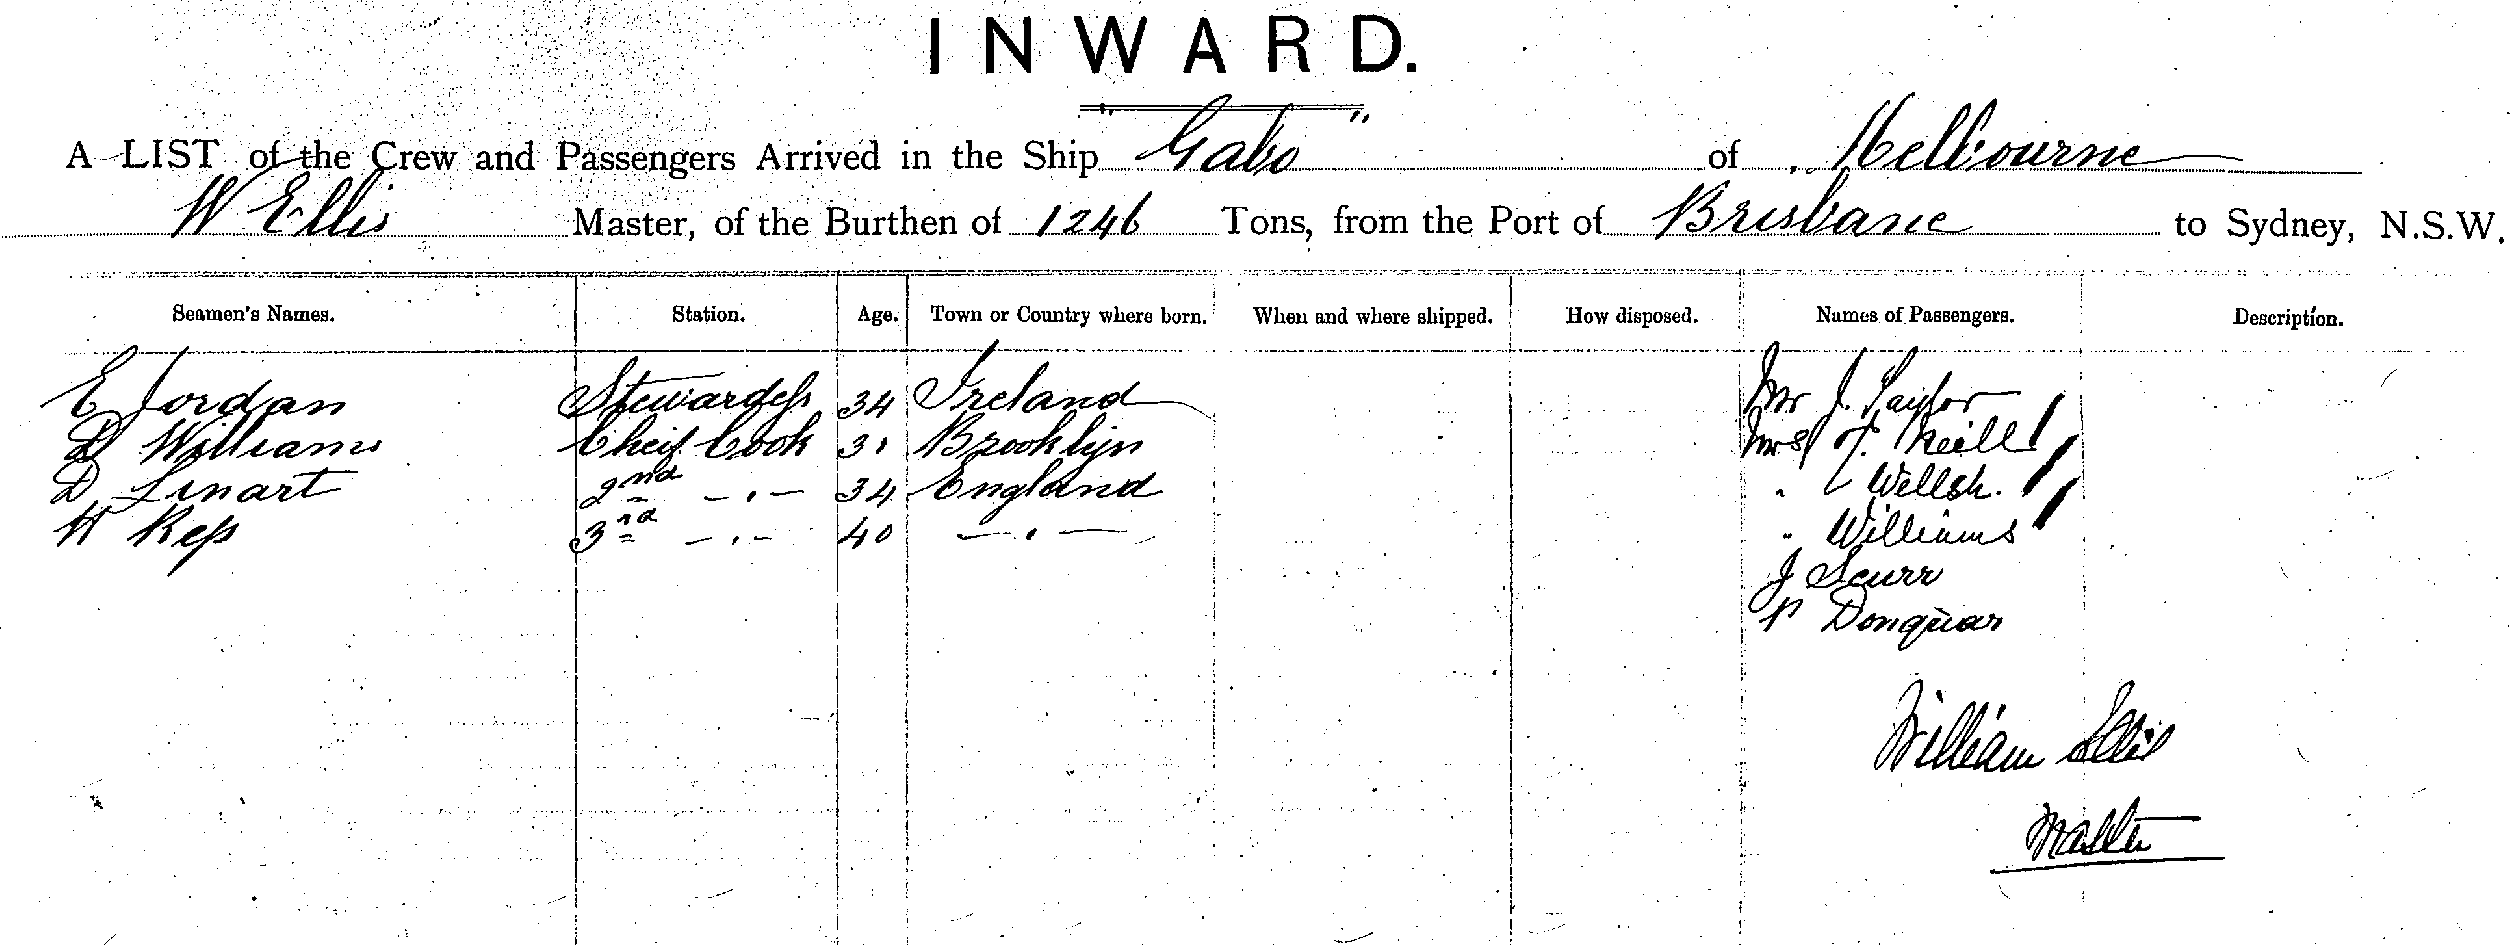 INWARD.
A LIST of the Crew and Passengers Arrived in the Ship "Gabo" of Melbourne
W Ellis Master, of the Burthen of 1246 Tons, from the Port of Brisbane to Sydney, N.S.W.
Seamen's Names. Station. Age. Town or Country where born. When and where shipped. How disposed. Names of Passengers. Description.
E Jordan Stewardess 34 Ireland Mr J. Taylor
D Williams Cheif Cook 31 Brooklyn Mrs Neill
D Linart 2nd - " - 34 England " Wellsh.
H Ress 3rd - " - 40 - " - " Williams
J Scurr
P Donquar
William Ellis
Master